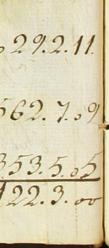 29.2.11
562.7.09
353.5.05
122.3.00